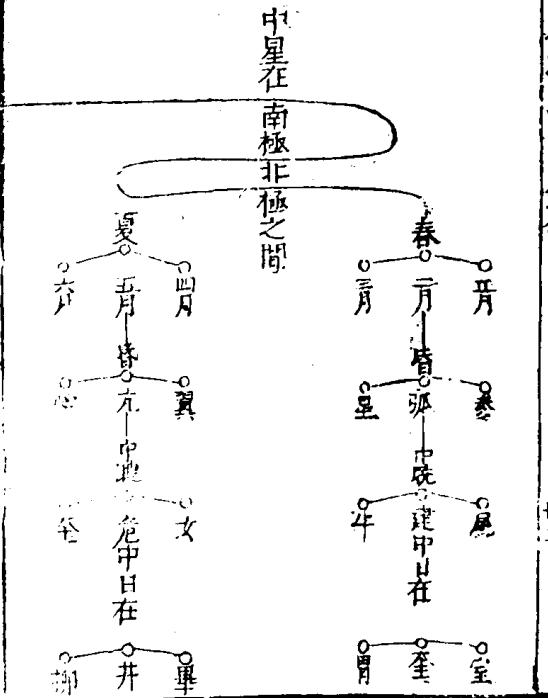 中星在南極北極之間
春
正月 二月 三月
昏
參 弧 星
中曉
尾 建 牛
中日在
室 奎 胃
夏
四月 五月 六月
昏
翼 亢 心
中曉
女 危 奎
中日在
畢 井 柳